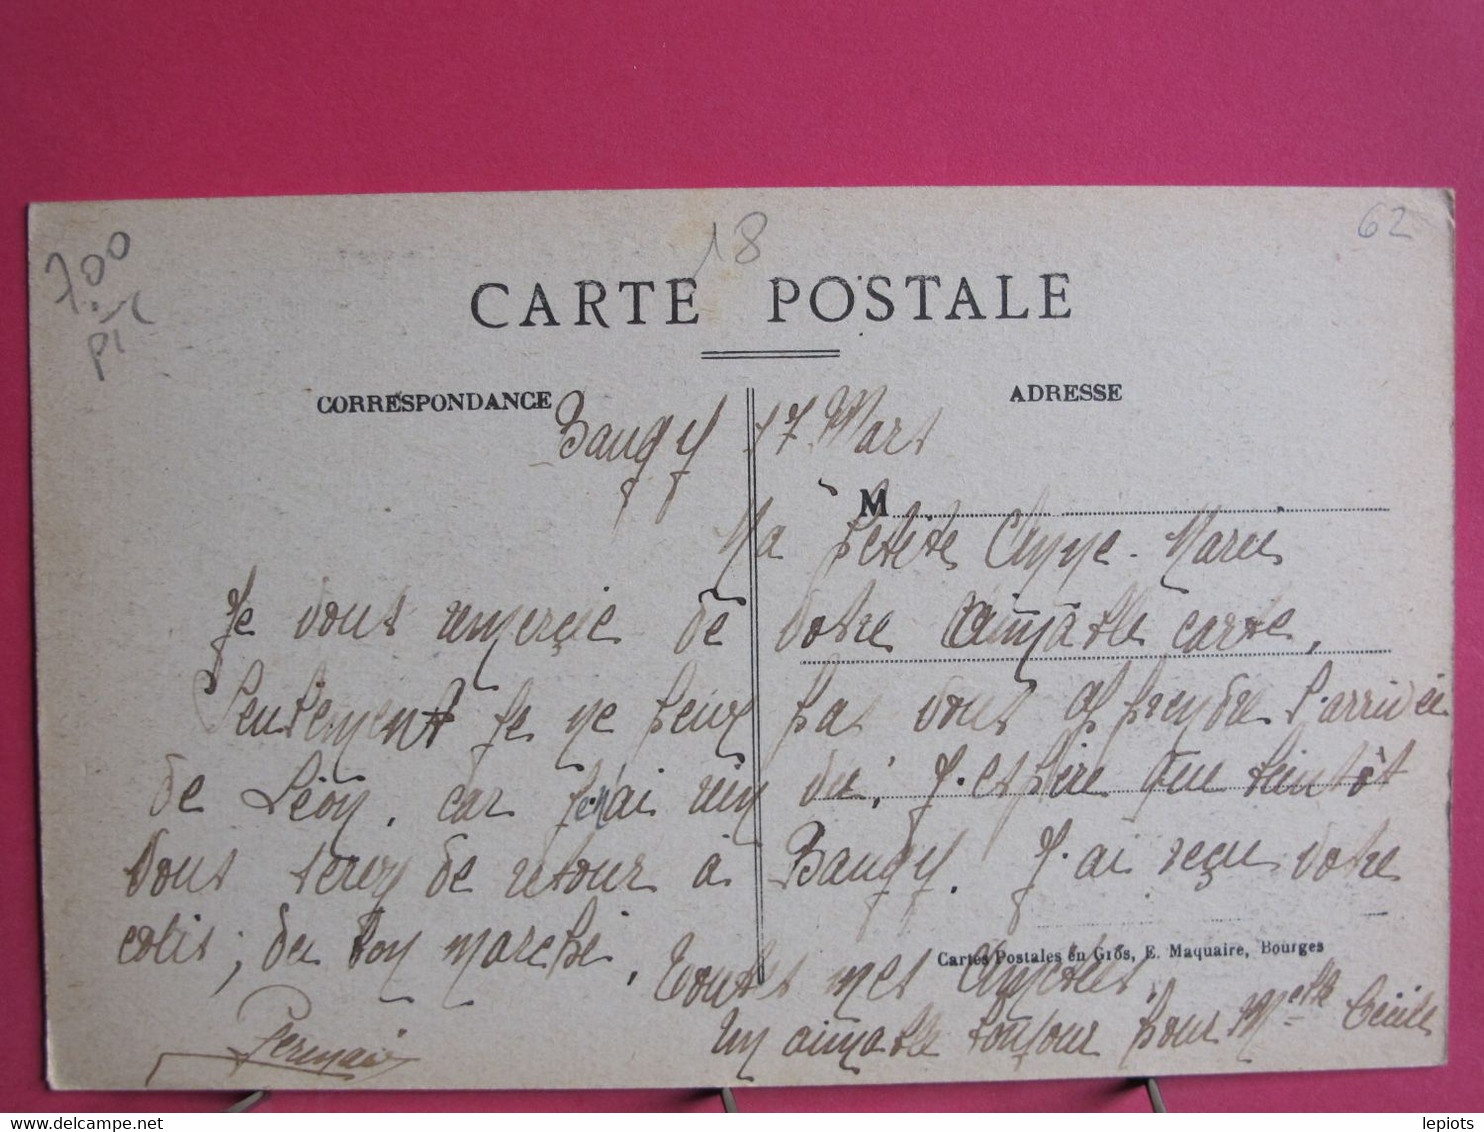 700
pic
18
62
CARTE POSTALE
CORRESPONDANCE
ADRESSE
Baugy 17 Mars
M
Ma petite Anne-Marie
Je vous remercie de votre aimable carte,
Seulement je ne peux pas vous apprendre l'arrivée
de Léon, car je n'ai rien vu; J'espère que bientôt
vous serez de retour à Baugy. J'ai reçu votre
colis; du bon marché.
Toutes mes Amitiés,
Cartes Postales en Gros, E. Maquaire, Bourges
Un aimable bonjour pour Melle Cécile
Germain
lepiots